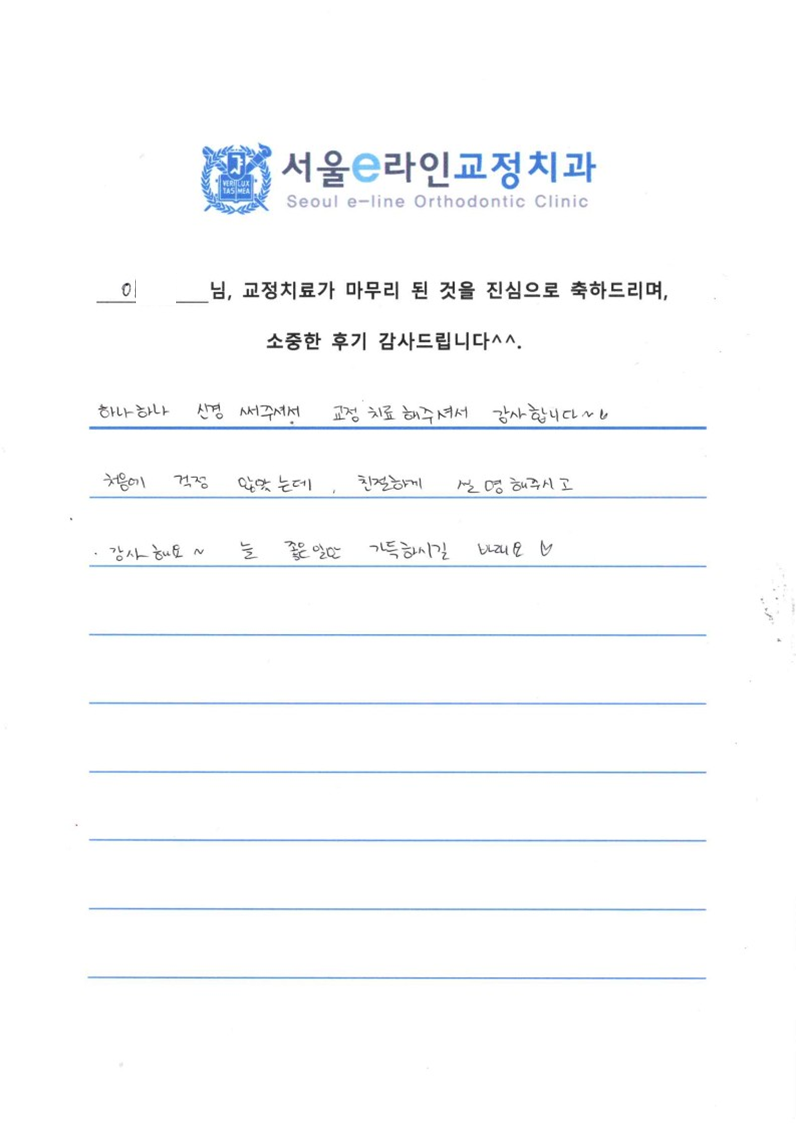 서울e라인교정치과
Seoul e-line Orthodontic Clinic
VERI LUX
TAS MEA
이 님, 교정치료가 마무리 된 것을 진심으로 축하드리며,
소중한 후기 감사드립니다^^.
하나하나 신경 써주셔성 교정 치료해주셔서 감사합니다~♡
처음에 걱정 많았는데, 친절하게 설명해주시고
감사해요~ 늘 좋은일만 가득하시길 바래요♡